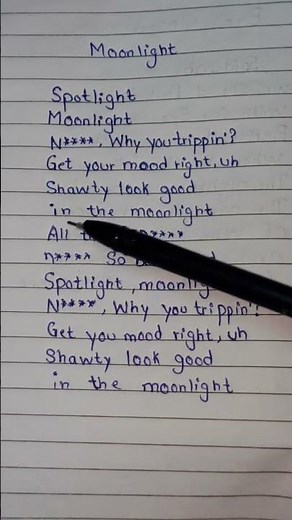 Moonlight
Spotlight
Moonlight
N****, Why you trippin'?
Get your mood right, uh
Shawty look good
in the moonlight
All
n**** So
Spotlight, moonlig
N****, Why you trippin'?
Get you mood right, uh
Shawty look good
in the moonlight